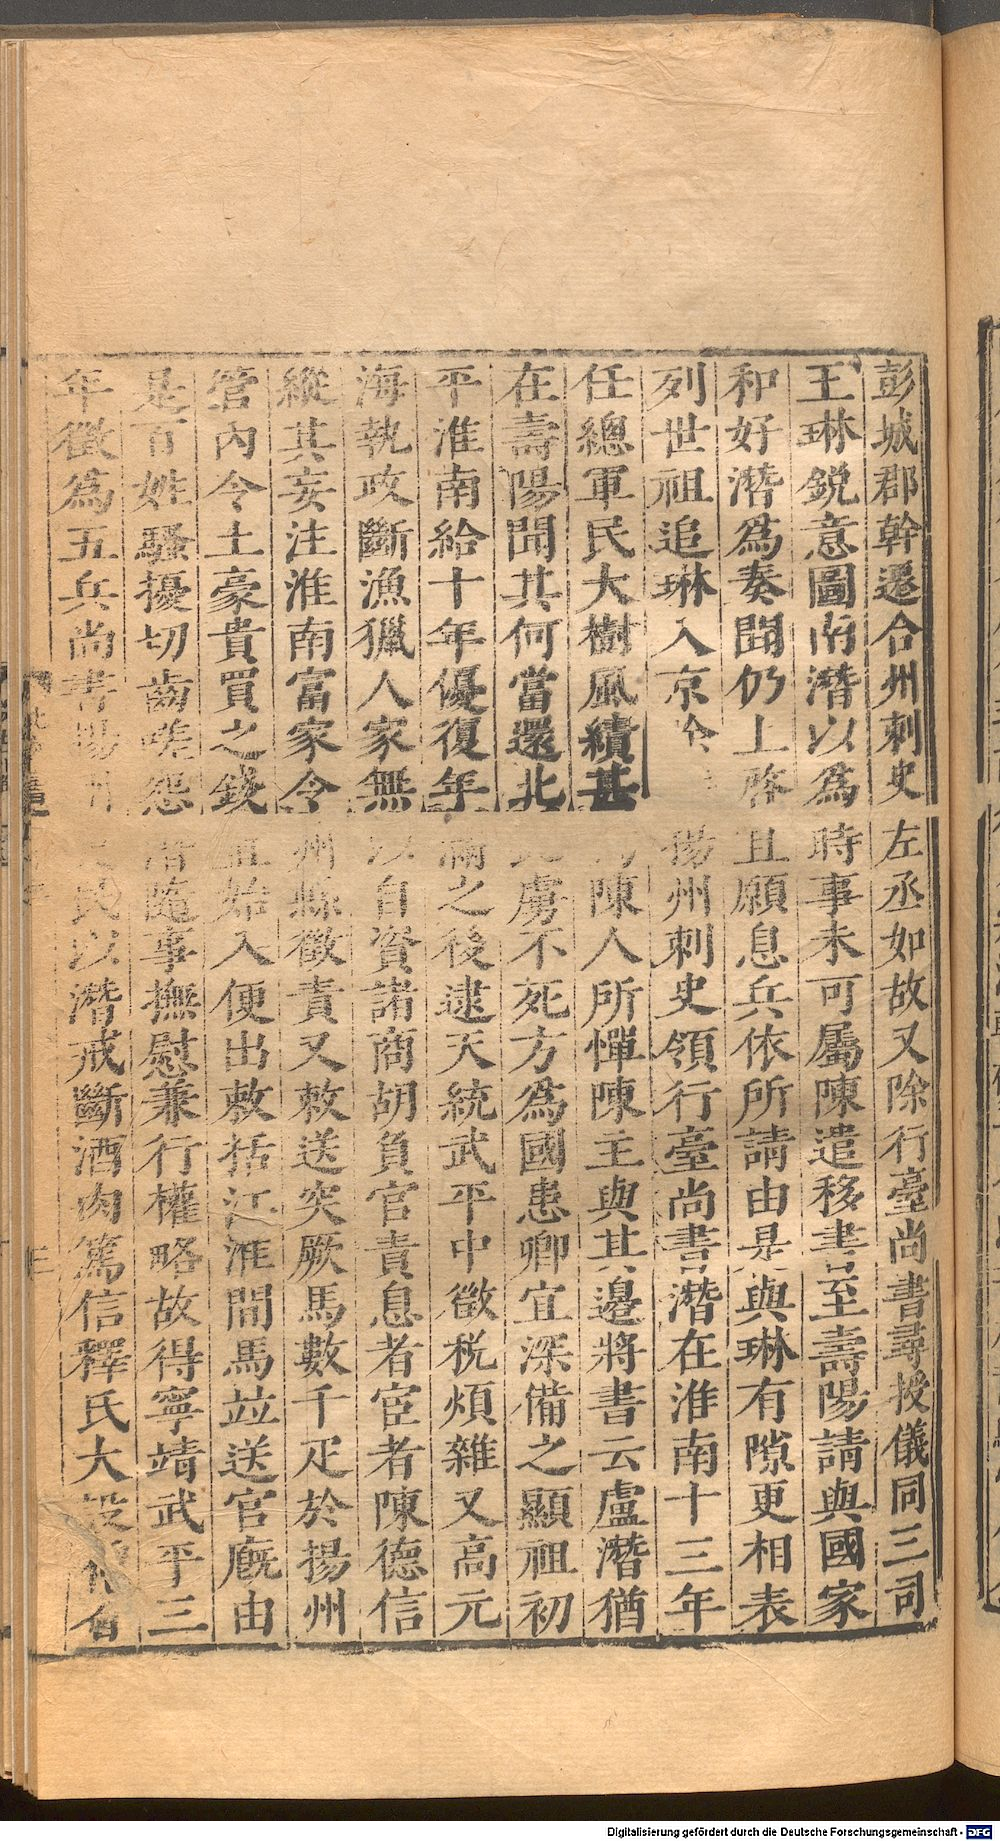 彭城郡幹遷合州刺史左丞如故又除行臺尚書尋授儀同三司
王琳銳意圖南潛以為時事未可屬陳遣移書至壽陽請與國家
和好潛為奏聞仍上啓且願息兵依所請由是與琳有隙更相表
列世祖追琳入京 揚州刺史領行臺尚書潛在淮南十三年
任總軍民大樹風績甚 陳人所憚陳主與其邊將書云盧潛猶
在壽陽聞其何當還北 虜不死方為國患卿宜深備之顯祖初
平淮南給十年優復年滿之後逮天統武平中徵稅煩雜又高元
海執政斷漁獵人家無以自資諸商胡負官責息者宦者陳德信
縱其妄注淮南富家令州縣徵責又敕送突厥馬數千疋於揚州
管內令土豪貴買之錢直始入便出敕括江淮間馬並送官廐由
是百姓騷擾切齒嗟怨潛隨事撫慰兼行權略故得寧靖武平三
年徵為五兵尚書揚州 民以潛戒斷酒肉篤信釋氏大設
Digitalisierung gefördert durch die Deutsche Forschungsgemeinschaft - DFG